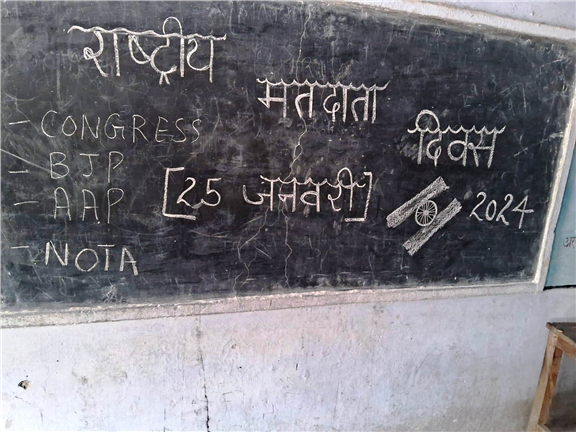 राष्ट्रीय
मतदाता
दिवस
- CONGRESS
- BJP
- AAP
- NOTA
[25 जनवरी]
2024